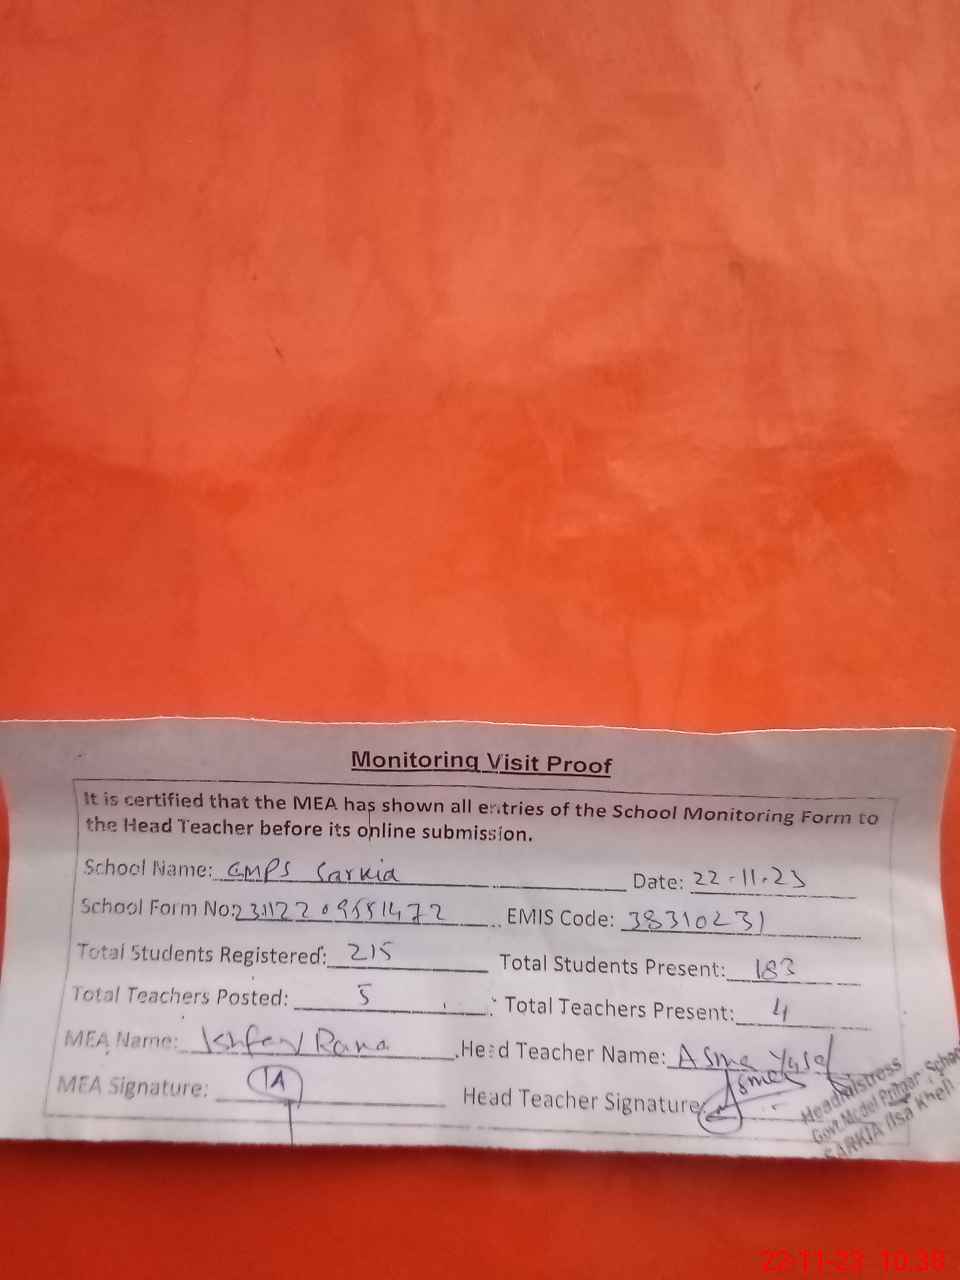 Monitoring Visit Proof
It is certified that the MEA has shown all entries of the School Monitoring Form to
the Head Teacher before its online submission.
School Name: GMPS Sarkia Date: 22-11-23
School Form No: EMIS Code: 38310231
Total Students Registered: 215 Total Students Present: 183
Total Teachers Posted: 5 Total Teachers Present: 4
MEA Name: Rana Head Teacher Name: Asma
MEA Signature: IA Head Teacher Signature: Asma
Headmistress
Govt. Model Primary School
SARKIA (Isa Khel)
22-11-23 10:38